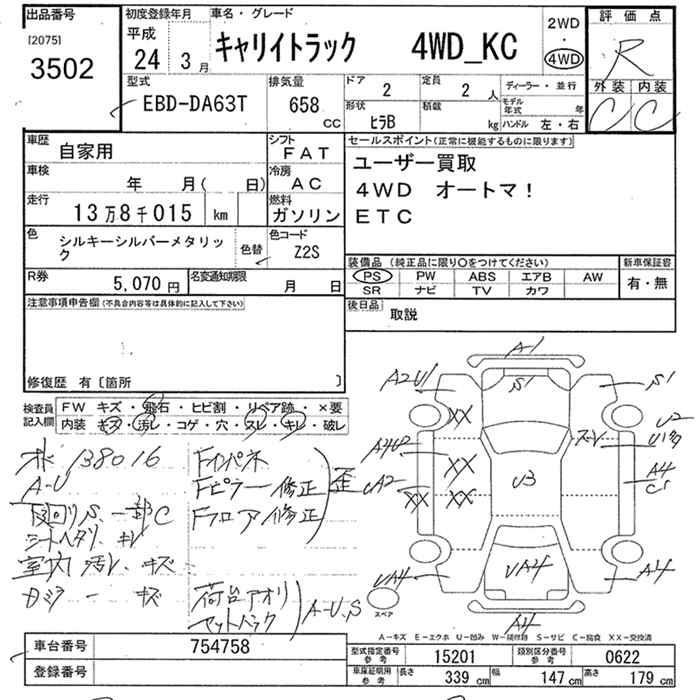 出品番号
[2075]
3502
初度登録年月
平成
24年 3月
車名・グレード
キャリイトラック 4WD_KC
2WD
・
4WD
評価点
R
外装 内装
C C
型式
EBD-DA63T
排気量
658
CC
ドア
2
定員
2 人
形状
ヒラB
積載
kg
ディーラー・並行
モデル年式 年
ハンドル 左・右
車歴
自家用
シフト
FAT
車検
年 月( 日)
冷房
AC
走行
13万8千015 km
燃料
ガソリン
色
シルキーシルバーメタリック
色替
色コード
Z2S
R券
5,070 円
名変通知期限
月 日
セールスポイント(正常に機能するものに限ります)
ユーザー買取
4WD オートマ!
ETC
装備品(純正品に限り○をつけてください)
新車保証書
PS PW ABS エアB AW
SR ナビ TV カワ
有・無
後日品
取説
注意事項申告欄(不具合内容等は具体的に記入して下さい)
修復歴 有〔箇所 〕
検査員記入欄
FW キズ・飛石・ヒビ割・リペア跡・×要
内装 キズ・汚レ・コゲ・穴・スレ・キレ・破レ
138016
A-U
下回りS、一部C
シートヘタリ、キレ
室内 汚レ、キズ
キズ
Fインパネ
Fピラー修正
Fフロア修正
歪
荷台アオリ
セットバック
A-U,S
A-1
A2U1
S1
S1
XX
U2
スーレ
A4U2
XX
U3
A4
UA2
XX
XX
UA4
UA4
A4
スペア
A4
A-キズ E-エクボ U-凹み W-補修跡 S-サビ C-腐食 XX-交換済
車台番号
754758
登録番号
型式指定番号
参考
15201
類別区分番号
参考
0622
車庫証明用
参考
長さ
339 cm
幅
147 cm
高さ
179 cm